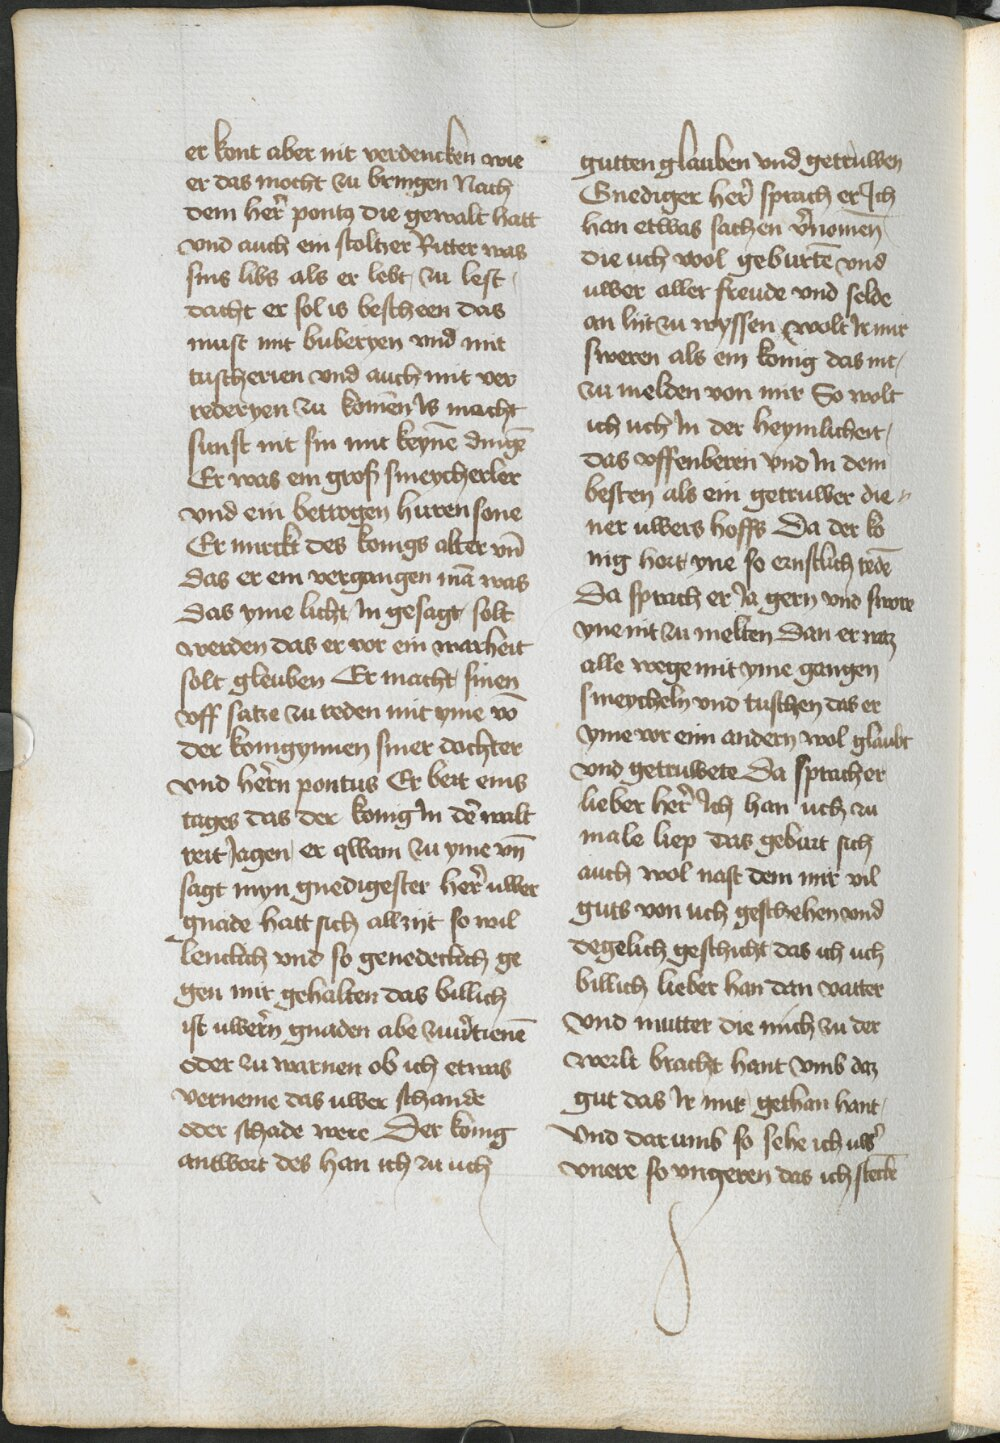 er kont aber nit verdencken wie
er das mocht zu bringen Nach
dem her̃ pontꝰ die gewalt hatt
vnd auch ein stoltzer Ritter was
sins libs als er lebt zu lest
dacht er sol is bescheen das
must mit buberyen vnd mit
tuscherien vnd auch mit ver
rederyen zu komẽn Is macht
sunst nit sin mit keynẽ dingẽ
Er was ein groß smeycherler
vnd ein betrogen huren sone
Er mirckt des konigs alter vñ
das er ein vergangen mã was
das yme licht In gesagt solt
werden das er vor ein warheit
solt gleuben Er macht sinen
vff satze zu reden mit yme võ
der konigynnen siner dochter
vnd her̃n pontus Er beit eins
tages das der konig In dẽ walt
reit Jagen er qwam zu yme vñ
sagt myn gnedigester her̃ uwer
gnade hatt sich allzijt so wil
lenclich vnd so genedeclich ge
gen mir gehalten das billich
ist uwer̃n gnaden abe zuũdienẽ
oder zu warnen ob ich etwas
verneme das uwer schande
oder schade were Der konig
antwort des han ich zu uch
gutten glauben vnd getruwen
Gnediger her̃ sprach er Ich
han etwas sachen v̾nomen
die uch wol geburtẽ vnd
uwer aller freude vnd selde
an lijt zu wyssen wolt Ir mir
sweren als ein konig das nit
zu melden von mir So wolt
ich uch In der heymlicheit
das vffenberen vnd In dem
besten als ein getruwer die
ner uwers hoffs Da der ko
nig hort yne so ernstlich redẽ
Da sprach er Ja gern vnd swore
yne nit zu melten Dan er waz
alle wege mit yme gangen
smeycheln vnd tuschen das er
yme vor eim andern wol glaubt
vnd getruwete Da sprach er
lieber her̃ Ich han uch zu
male liep das geburt sich
auch wol nast dem mir vil
guts von uch geschehen vnd
degelich geschicht das ich uch
billich lieber han dan vatter
vnd mutter die mich zu der
werlt bracht hant vmb daz
gut das Ir mir gethan hant
Vnd darumb so sehe ich uw̾
vnere so vngeren das ich sterbẽ